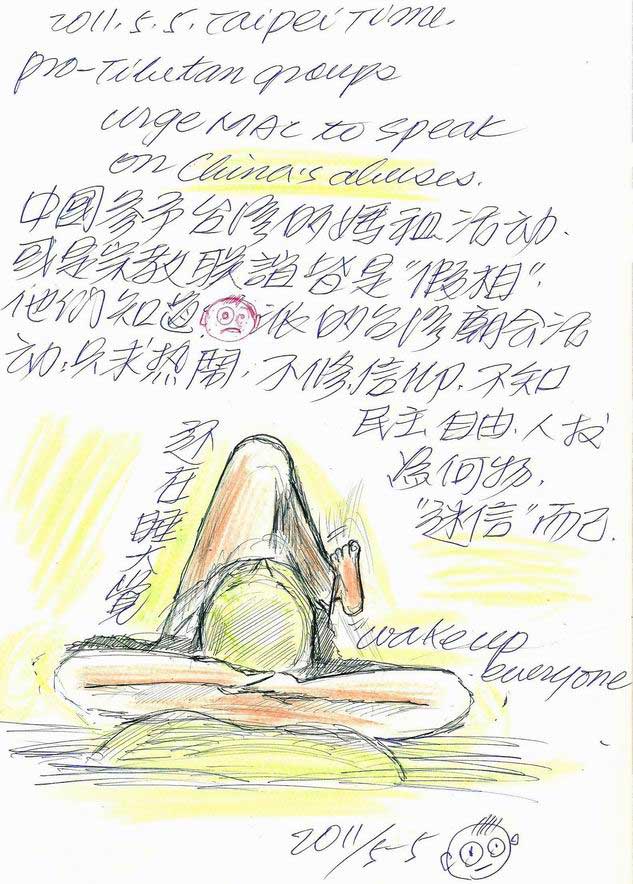 2011.5.5. Taipei Time.
pro-Tibetan groups
urge MAC to speak
on China's abuses.
中國參予台灣的媽祖活動.
或是宗教聯誼皆是"假相".
他们知道 派的台灣廟会活
动.只求热鬧.不修信仰.不知
民主.自由.人权
為何物.
"迷信"而已.
还在睡大覚
wake up
everyone
2011/5-5